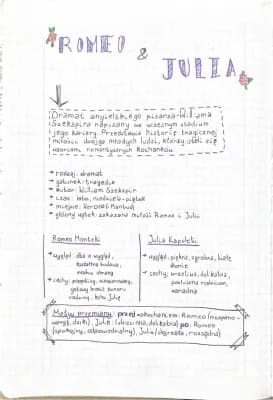 ROMEO
&
JULIA
Dramat angielskiego pisarza Williama
Szekspira napisany we wczesnym stadium
jego kariery. Przedstawia historię tragicznej
miłości dwojga młodych ludzi, którzy stali się
wzorcem romantycznych kochanków.
* rodzaj: dramat
* gatunek: tragedia
* autor: William Szekspir
* czas: lato, niedziela-piątek
* miejsce: Werona i Mantua
* główny wątek: zakazana miłość Romea i Julii
Romeo Monteki
* wygląd: dba o wygląd,
budowa,
modne ubrany
* cechy: porywczy,
gotowy bronić honoru
rodziny, kocha Julię
Julia Kapuleti
* wygląd: piękna, zgrabna, białe
dłonie
* cechy: wrażliwa, delikatna,
posłuszna rodzicom,
Motyw przemiany: przed zakochaniem: Romeo
Julia (dziecinna, delikatna) po: Romeo
(spokojny, odpowiedzialny), Julia (dojrzała, rozsądna)